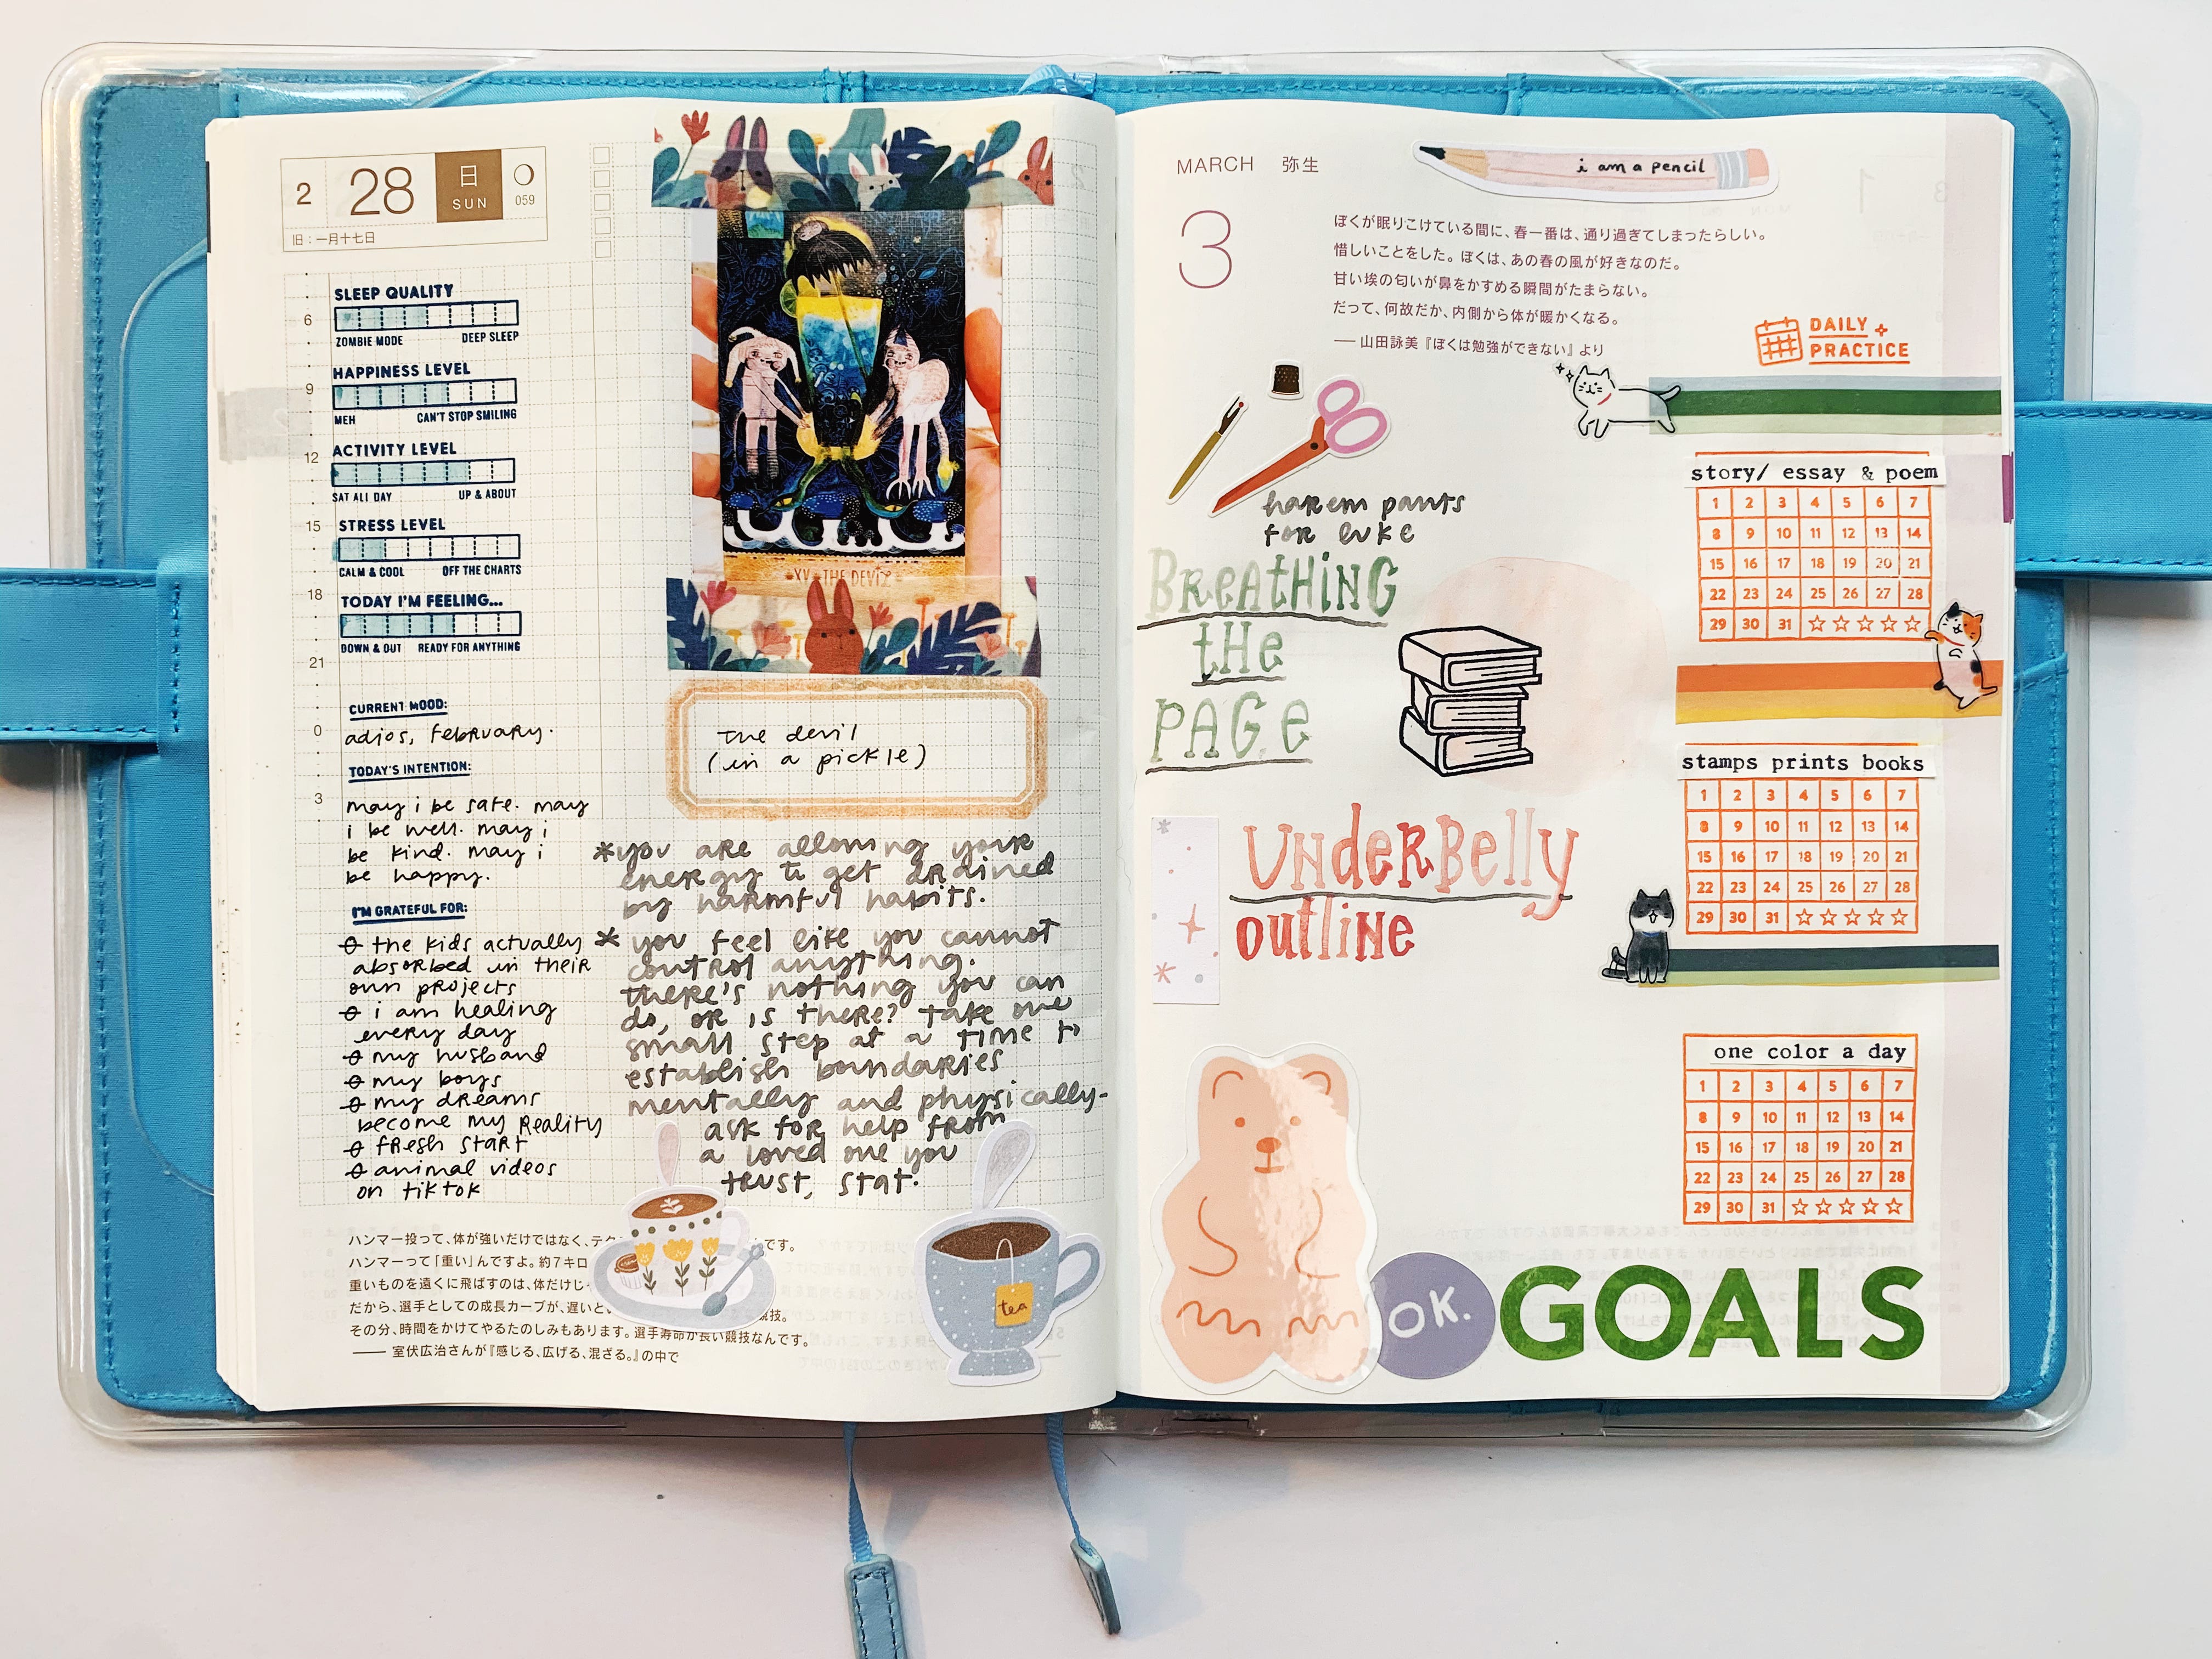 2
28
日
SUN
059
旧：一月十七日
SLEEP QUALITY
6
ZOMBIE MODE DEEP SLEEP
HAPPINESS LEVEL
9
MEH CAN'T STOP SMILING
ACTIVITY LEVEL
12
SAT ALL DAY UP & ABOUT
STRESS LEVEL
15
CALM & COOL OFF THE CHARTS
18
TODAY I'M FEELING...
DOWN & OUT READY FOR ANYTHING
21
CURRENT MOOD:
0
adios, february.
TODAY'S INTENTION:
3
may i be safe. may
i be well. may i
be kind. may i
be happy.
I'M GRATEFUL FOR:
the kids actually
absorbed in their
own projects
i am healing
every day
my husband
my boys
my dreams
become my reality
fresh start
animal videos
on tiktok
XV THE DEVIL
the devil
(in a pickle)
*you are allowing your
energy to get drained
by harmful habits.
* you feel like you cannot
control anything.
there's nothing you can
do, or is there? take one
small step at a time to
establish boundaries
mentally and physically-
ask for help from
a loved one you
trust, stat.
tea
ハンマー投って、体が強いだけではなく、テク です。
ハンマーって「重い」んですよ。約7キロ
重いものを遠くに飛ばすのは、体だけじ
だから、選手としての成長カーブが、遅いと 競技。
その分、時間をかけてやるたのしみもあります。選手寿命が長い競技なんです。
―― 室伏広治さんが『感じる、広げる、混ざる。』の中で
MARCH 弥生
i am a pencil
3
ぼくが眠りこけている間に、春一番は、通り過ぎてしまったらしい。
惜しいことをした。ぼくは、あの春の風が好きなのだ。
甘い埃の匂いが鼻をかすめる瞬間がたまらない。
だって、何故だか、内側から体が暖かくなる。
―― 山田詠美『ぼくは勉強ができない』より
DAILY
PRACTICE
harem pants
for luke
BReAtHiNG
tHe
PAGe
UNdeRBelly
outliNe
story/ essay & poem
1 2 3 4 5 6 7
8 9 10 11 12 13 14
15 16 17 18 19 20 21
22 23 24 25 26 27 28
29 30 31 ☆ ☆ ☆ ☆ ☆
stamps prints books
1 2 3 4 5 6 7
8 9 10 11 12 13 14
15 16 17 18 19 20 21
22 23 24 25 26 27 28
29 30 31 ☆ ☆ ☆ ☆ ☆
one color a day
1 2 3 4 5 6 7
8 9 10 11 12 13 14
15 16 17 18 19 20 21
22 23 24 25 26 27 28
29 30 31 ☆ ☆ ☆ ☆ ☆
OK.
GOALS